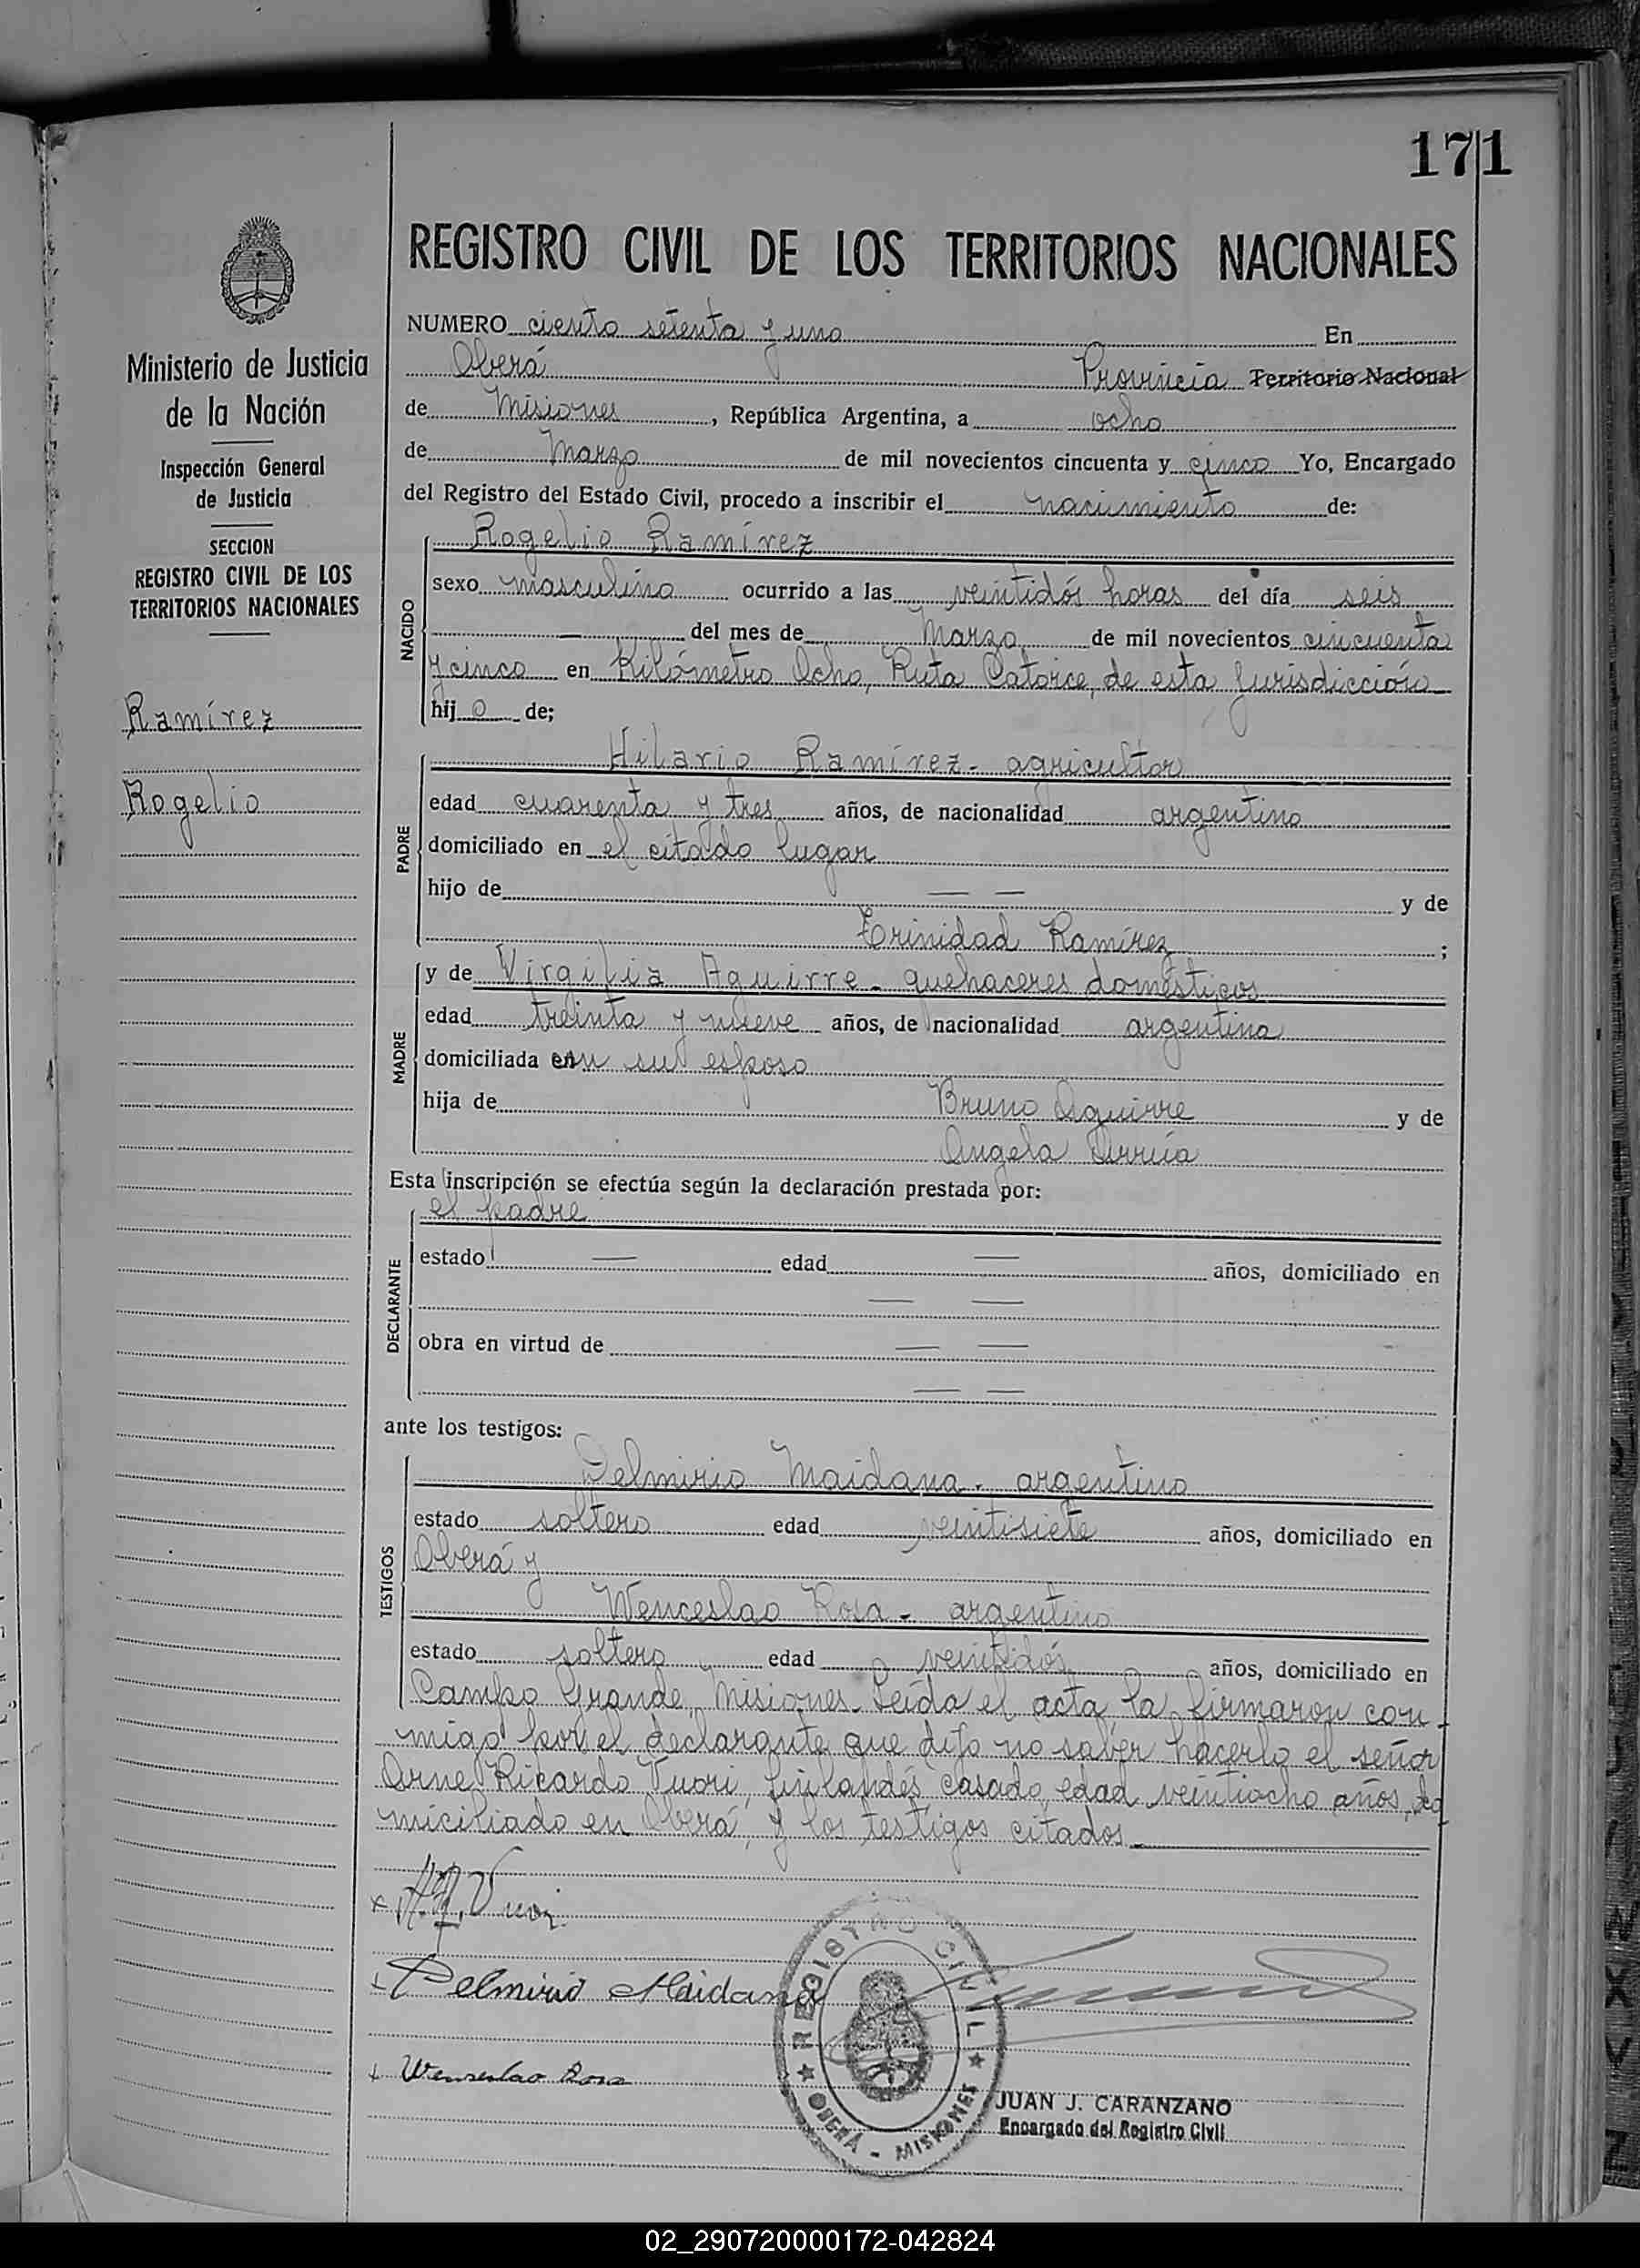 171
REGISTRO CIVIL DE LOS TERRITORIOS NACIONALES
Ministerio de Justicia
de la Nación
Inspección General
de Justicia
SECCION
REGISTRO CIVIL DE LOS
TERRITORIOS NACIONALES
Ramírez
Rogelio
NUMERO ciento setenta y uno En
Oberá Provincia Territorio Nacional
de Misiones, República Argentina, a ocho
de Marzo de mil novecientos cincuenta y cinco Yo, Encargado
del Registro del Estado Civil, procedo a inscribir el nacimiento de:
NACIDO
Rogelio Ramírez
sexo masculino ocurrido a las veintidós horas del día seis
— del mes de Marzo de mil novecientos cincuenta
y cinco en Kilómetro Ocho, Ruta Catorce, de esta jurisdicción
hij o de;
PADRE
Hilario Ramírez - agricultor
edad cuarenta y tres años, de nacionalidad argentino
domiciliado en el citado lugar
hijo de — — y de
Trinidad Ramírez ;
MADRE
y de Virgilia Aguirre - quehaceres domésticos
edad treinta y nueve años, de nacionalidad argentina
domiciliada con su esposo
hija de Bruno Aguirre y de
Angela Arrúa
Esta inscripción se efectúa según la declaración prestada por:
DECLARANTE
el padre
estado — edad — años, domiciliado en
— —
obra en virtud de — —
— —
ante los testigos:
TESTIGOS
Delmirio Maidana - argentino
estado soltero edad veintisiete años, domiciliado en
Oberá y
Wenceslao Rosa - argentino
estado soltero edad veintidós años, domiciliado en
Campo Grande, Misiones. Leída el acta la firmaron con-
migo por el declarante que dijo no saber hacerlo el señor
Arne Ricardo Tuori, finlandés, casado, edad veintiocho años, do
miciliado en Oberá, y los testigos citados.
x A.R. Tuori
x Delmirio Maidana
x Wenseslao Rosa
REGISTRO CIVIL
OBERÁ - MISIONES
JUAN J. CARANZANO
Encargado del Registro Civil
02_290720000172-042824